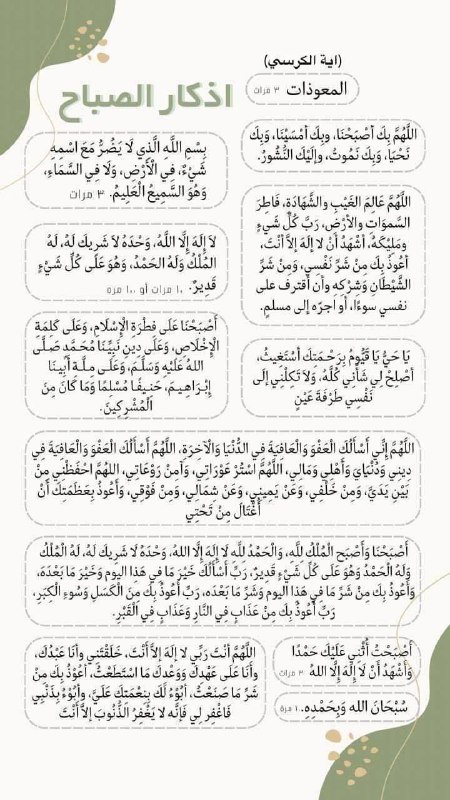 (اية الكرسي)
المعوذات ٣ مرات
اذكار الصباح
اللَّهُمَّ بِكَ أَصْبَحْنَا، وبِكَ أَمْسَيْنَا، وَبِكَ
نَحْيَا، وَبِكَ نَمُوتُ، وإِلَيْكَ النُّشُورُ.
بِسْمِ اللَّه الَّذِي لَا يَضُرُّ مَعَ اسْمِهِ
شَيْءٌ، في الْأَرْضِ، وَلَا في السَّمَاءِ،
وَهُوَ السَّمِيعُ الْعَلِيمُ. ٣ مرات
اللَّهُمَّ عَالِمَ الغَيْبِ والشَّهَادَةِ، فَاطِرَ
السَّمَواتِ والأَرْضِ، رَبَّ كُلِّ شَيءٍ
ومَلِيْكَهُ، أَشْهَدُ أَنْ لا إِلَهَ إِلاَّ أَنْتَ،
أَعُوذُ بِكَ مِنْ شَرِّ نَفْسِي، وَمِنْ شَرِّ
الشَّيْطَانِ وَشِرْكِهِ وأن أقترف على
نفسي سوءًا، أو أجرّه إلى مسلمٍ.
لاَ إِلَهَ إِلَّا اللَّهُ، وَحْدَهُ لاَ شَرِيكَ لَهُ، لَهُ
المُلْكُ وَلَهُ الحَمْدُ، وَهُوَ عَلَى كُلِّ شَيْءٍ
قَدِيرٌ. ١٠ مرات أو ١٠٠ مره
أَصْبَحْنَا عَلَى فِطْرَةِ الْإِسْلَامِ، وَعَلَى كَلِمَةِ
الْإِخْلَاصِ، وَعَلَى دِينِ نَبِيِّنَا مُحَمَّدٍ صَلَّى
اللهُ عَلَيْهِ وَسَلَّمَ، وَعَلَى مِلَّةِ أَبِينَا
إِبْرَاهِيمَ، حَنِيفًا مُسْلِمًا وَمَا كَانَ مِنَ
الْمُشْرِكِينَ.
يَا حَيُّ يَا قَيُّومُ بِرَحْمَتِكَ أَسْتَغِيثُ،
أَصْلِحْ لِي شَأْنِي كُلَّهُ، وَلاَ تَكِلْنِي إِلَى
نَفْسِي طَرْفَةَ عَيْنٍ
اللَّهُمَّ إِنِّي أَسْأَلُكَ الْعَفْوَ وَالْعَافِيَةَ فِي الدُّنْيَا وَالْآخِرَةِ، اللَّهُمَّ أَسْأَلُكَ الْعَفْوَ وَالْعَافِيَةَ فِي
دِينِي وَدُنْيَايَ وَأَهْلِي وَمَالِي، اللَّهُمَّ اسْتُرْ عَوْرَاتِي، وَآمِنْ رَوْعَاتِي، اللَّهُمَّ احْفَظْنِي مِنْ
بَيْنِ يَدَيَّ، وَمِنْ خَلْفِي، وَعَنْ يَمِينِي، وَعَنْ شِمَالِي، وَمِنْ فَوْقِي، وَأَعُوذُ بِعَظَمَتِكَ أَنْ
أُغْتَالَ مِنْ تَحْتِي
أَصْبَحْنَا وَأَصْبَحَ الْمُلْكُ لِلَّهِ، وَالْحَمْدُ لِلَّهِ لَا إِلَهَ إِلَّا اللهُ، وَحْدَهُ لَا شَرِيكَ لَهُ، لَهُ الْمُلْكُ
وَلَهُ الْحَمْدُ وَهُوَ عَلَى كُلِّ شَيْءٍ قَدِيرٌ، رَبِّ أَسْأَلُكَ خَيْرَ مَا في هَذِا اليوم وَخَيْرَ مَا بَعْدَهُ،
وَأَعُوذُ بِكَ مِنْ شَرِّ مَا في هَذِا اليوم وَشَرِّ مَا بَعْدَه، رَبِّ أَعُوذُ بِكَ مِنَ الْكَسَلِ وَسُوءِ الْكِبَرِ،
رَبِّ أَعُوذُ بِكَ مِنْ عَذَابٍ فِي النَّارِ وَعَذَابٍ فِي الْقَبْرِ.
أَصْبَحْتُ أُثْنِي عَلَيْكَ حَمْدًا
وَأَشْهَدُ أَنْ لَا إِلَهَ إِلَّا اللهُ ٣ مرات
سُبْحَانَ اللهِ وَبِحَمْدِهِ.
اللَّهُمَّ أَنْتَ رَبِّي لا إِلَهَ إِلاَّ أَنْتَ، خَلَقْتَنِي وأَنا عَبْدُكَ،
وأَنا عَلَى عَهْدِكَ وَوَعْدِكَ مَا اسْتَطَعْتُ، أَعُوْذُ بِكَ مِنْ
شَرِّ مَا صَنَعْتُ، أَبُوْءُ لَكَ بِنِعْمَتِكَ عَلَيَّ، وأَبُوْءُ بِذَنْبِي
فَاغْفِر لِي فَإِنَّه لا يَغْفِرُ الذُّنُوبَ إِلاَّ أَنْتَ